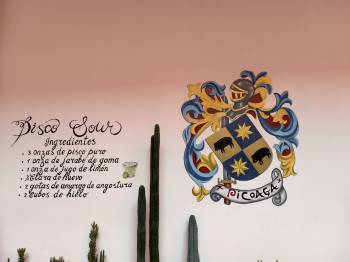 Pisco Sour
Ingredientes
• 3 onzas de pisco puro
• 1 onza de jarabe de goma
• 1 onza de jugo de limón
• 1 clara de huevo
• 2 gotas de amargo de angostura
• 3 cubos de hielo
PICOAGA